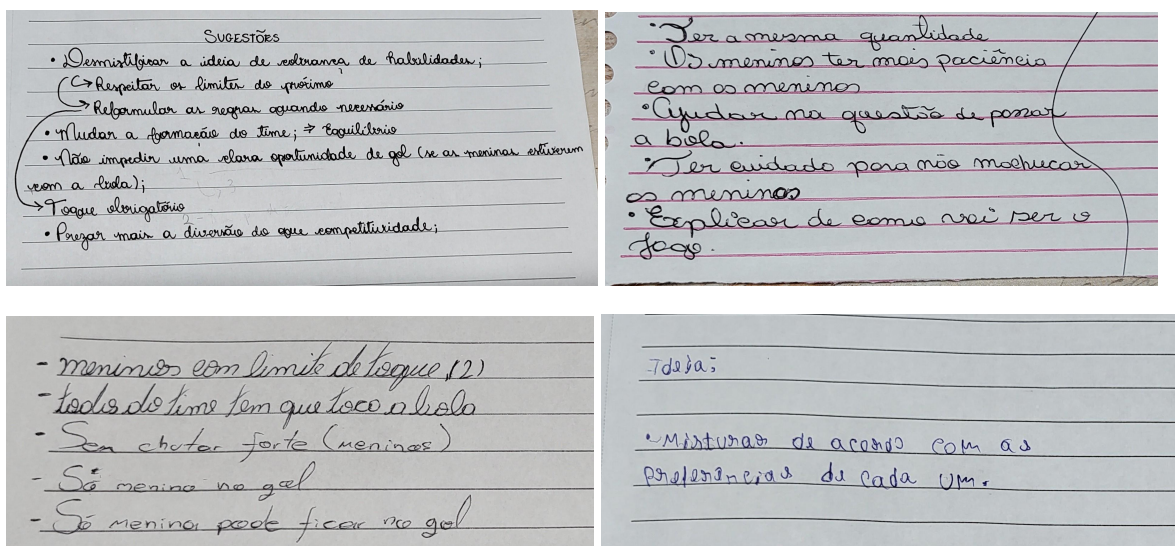 SUGESTÕES
• Desmistificar a ideia de cobrança de habilidades;
↳ Respeitar os limites do próximo
→ Reformular as regras quando necessário
• Mudar a formação do time; → Equilíbrio
• Não impedir uma clara oportunidade de gol (se as meninas estiverem
com a bola);
→ Toque obrigatório
• Prezar mais a diversão do que competitividade;
• Ter a mesma quantidade
• Os meninos ter mais paciência
com as meninas
• Ajudar na questão de passar
a bola.
• Ter cuidado para não machucar
as meninas
• Explicar de como vai ser o
jogo.
- meninos com limite de toque (2)
- todos do time tem que toca a bola
- Sem chutar forte (meninos)
- Só menino no gol
- Só menina pode ficar no gol
Ideia;
• Misturar de acordo com as
preferências de cada um.